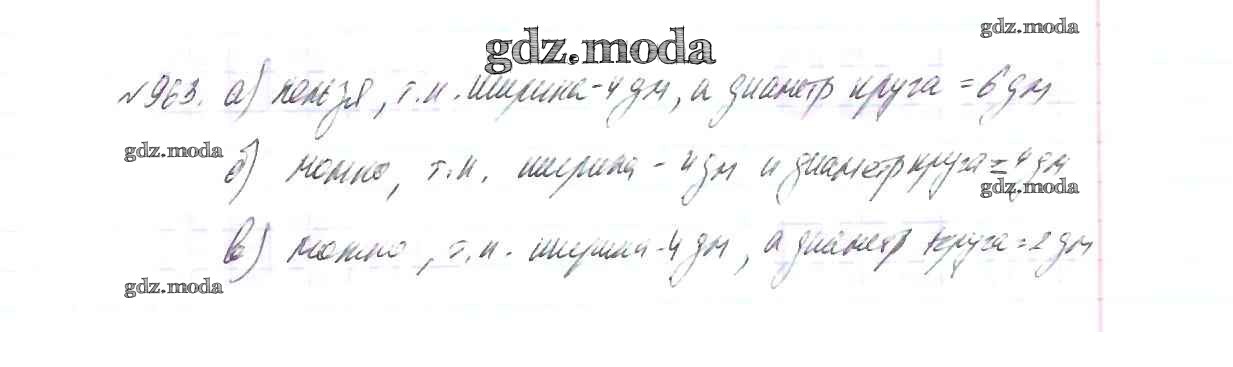 gdz.moda
gdz.moda
№963. а) нельзя, т.к. ширина-4 дм, а диаметр круга = 6 дм
gdz.moda
б) можно, т.к. ширина - 4 дм и диаметр круга = 4 дм
gdz.moda
в) можно, т.к. ширина-4 дм, а диаметр круга = 2 дм
gdz.moda